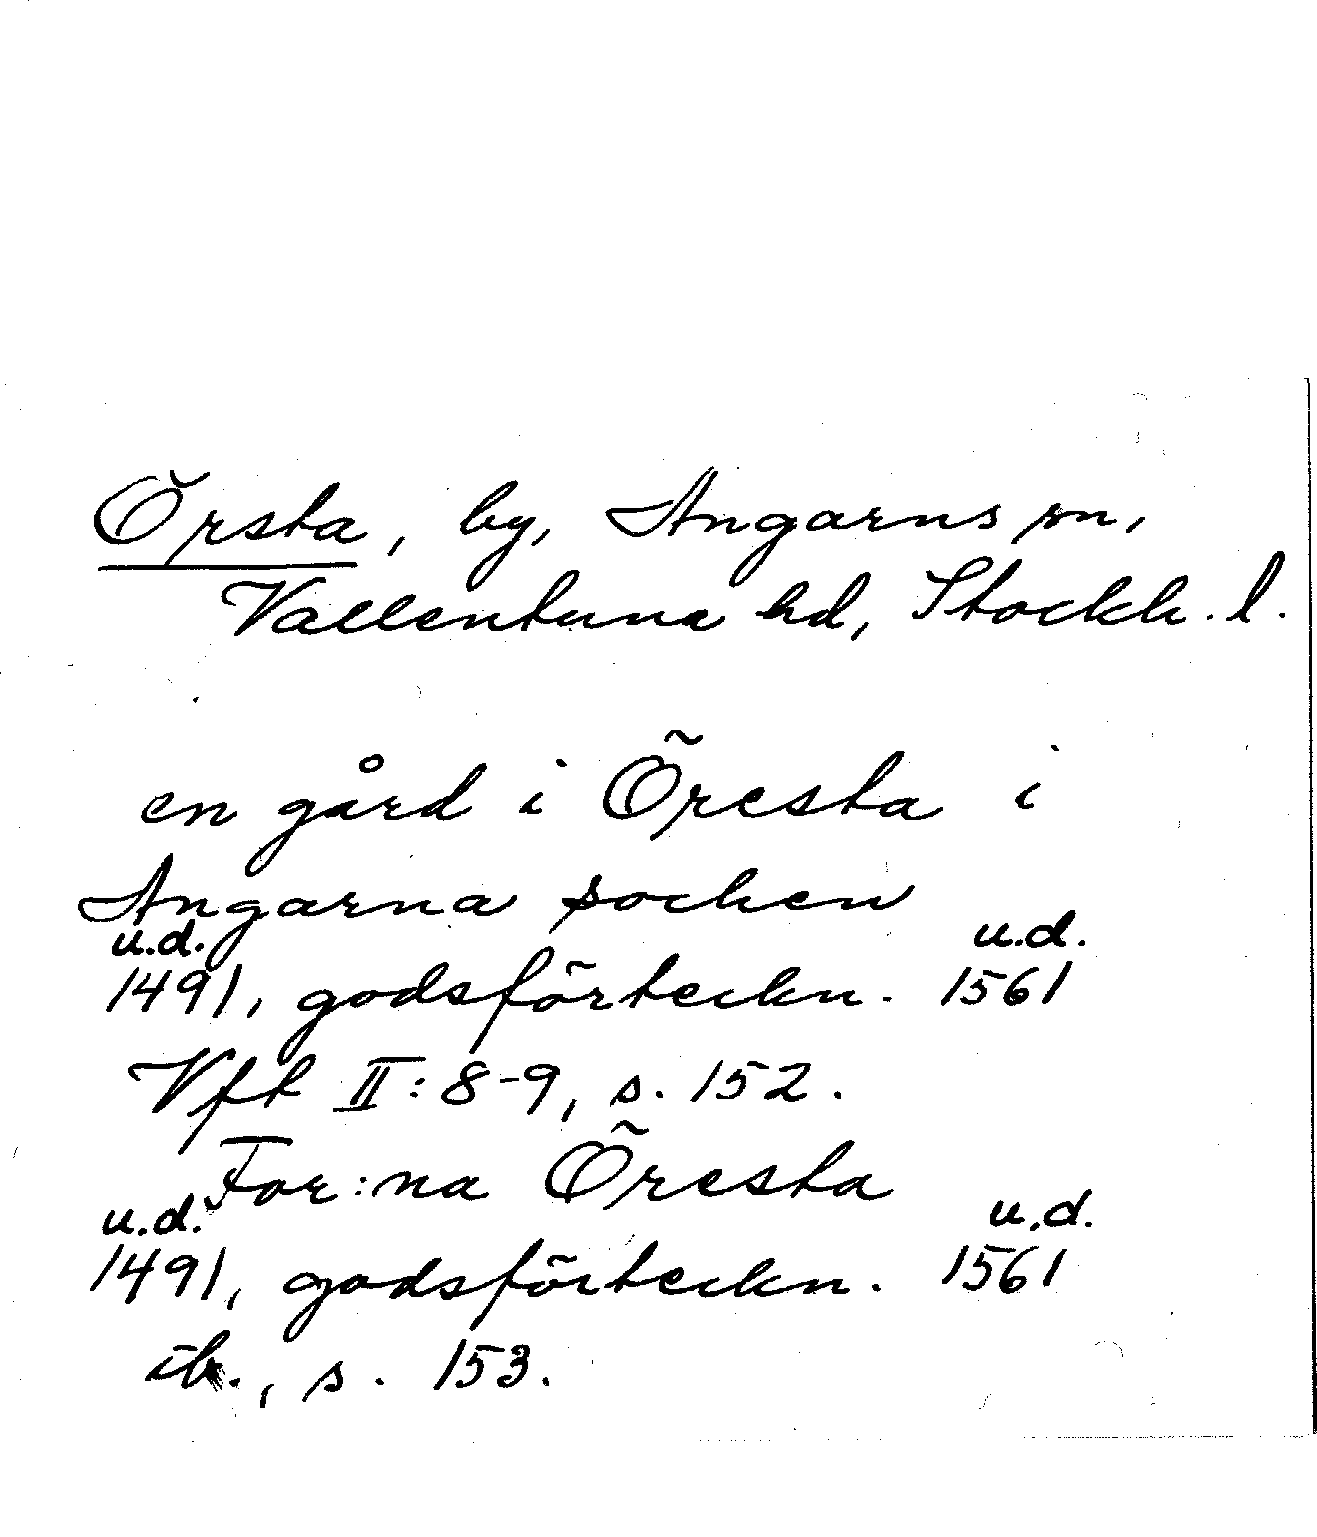 Örsta, by, Angarns sn,
Vallentuna hd, Stockh. l.
en gård i Öresta i
Angarna sochen
u.d. u.d.
1491, godsförteckn. 1561
Vft II: 8-9, s. 152.
For:na Öresta
u.d. u.d.
1491, godsförteckn. 1561
ib., s. 153.